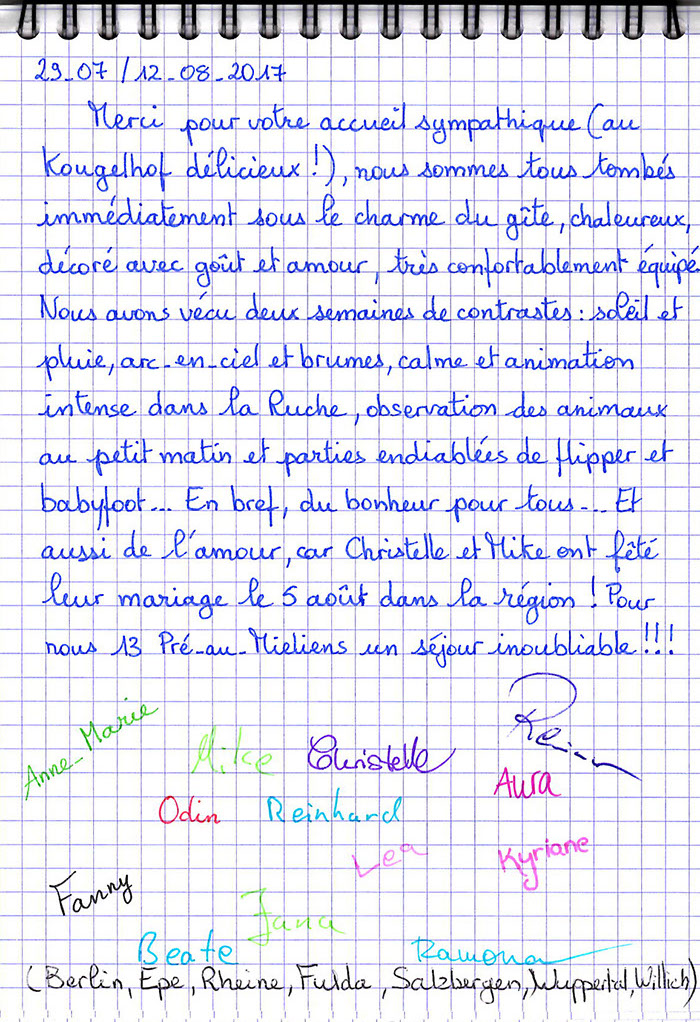 29_07 / 12_08_2017
Merci pour votre accueil sympathique (au
Kougelhof délicieux !), nous sommes tous tombés
immédiatement sous le charme du gîte, chaleureux,
décoré avec goût et amour, très confortablement équipé.
Nous avons vécu deux semaines de contrastes : soleil et
pluie, arc_en_ciel et brumes, calme et animation
intense dans la Ruche, observation des animaux
au petit matin et parties endiablées de flipper et
babyfoot... En bref, du bonheur pour tous... Et
aussi de l'amour, car Christelle et Mike ont fêté
leur mariage le 5 août dans la région ! Pour
nous 13 Pré_au_Mieliens un séjour inoubliable !!!
Anne_Marie
Mike Christelle
Aura
Odin Reinhard
Lea Kyriane
Fanny
Jana
Beate Ramona
(Berlin, Epe, Rheine, Fulda, Salzbergen, Wuppertal, Willich)